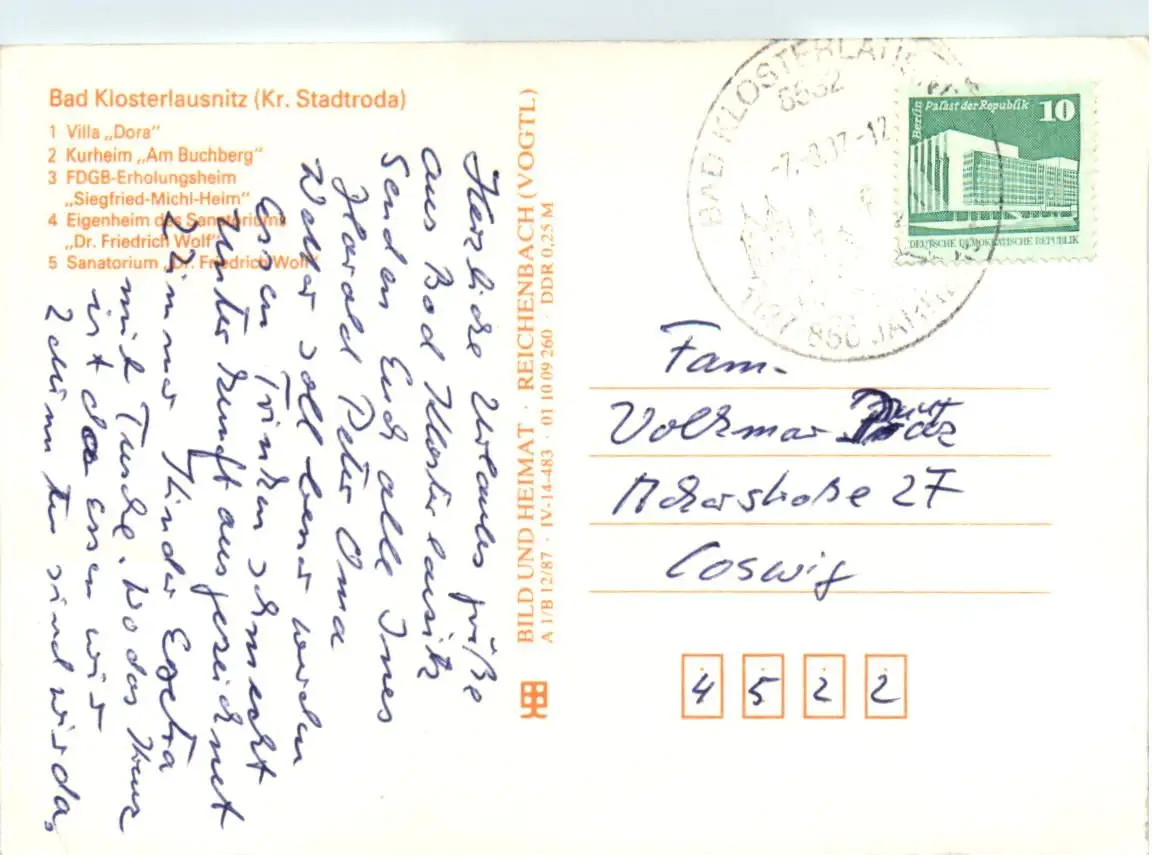 Bad Klosterlausnitz (Kr. Stadtroda)
1 Villa „Dora"
2 Kurheim „Am Buchberg"
3 FDGB-Erholungsheim
„Siegfried-Michl-Heim"
4 Eigenheim des Sanatoriums
„Dr. Friedrich Wolf"
5 Sanatorium „Dr. Friedrich Wolf"
Herzliche Urlaubsgrüße
aus Bad Klosterlausitz
Senden Euch alle Ines
Harald Peter Oma
Wetter soll besser werden
Essen Trinken schmeckt
Unterkunft ausgezeichnet
Zimmer Kinder Extra
mit Tusche. Wo das Kreuz
ist da Essen wir
2 drinn sind wir da,
BILD UND HEIMAT · REICHENBACH (VOGTL)
A 1/B 12/87 · IV-14-483 · 01 10 09 260 · DDR 0,25 M
BAD KLOSTERLAUSNITZ
6532
850 JAHRE
Berlin Palast der Republik 10
DEUTSCHE DEMOKRATISCHE REPUBLIK
Fam.
Volkmar
Ackerstraße 27
Coswig
4 5 2 2